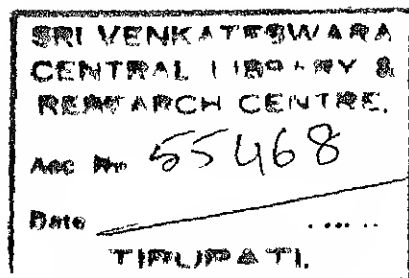 SRI VENKATESWARA
CENTRAL LIBRARY &
RESEARCH CENTRE.
Acc No 55468
Date .....
TIRUPATI.